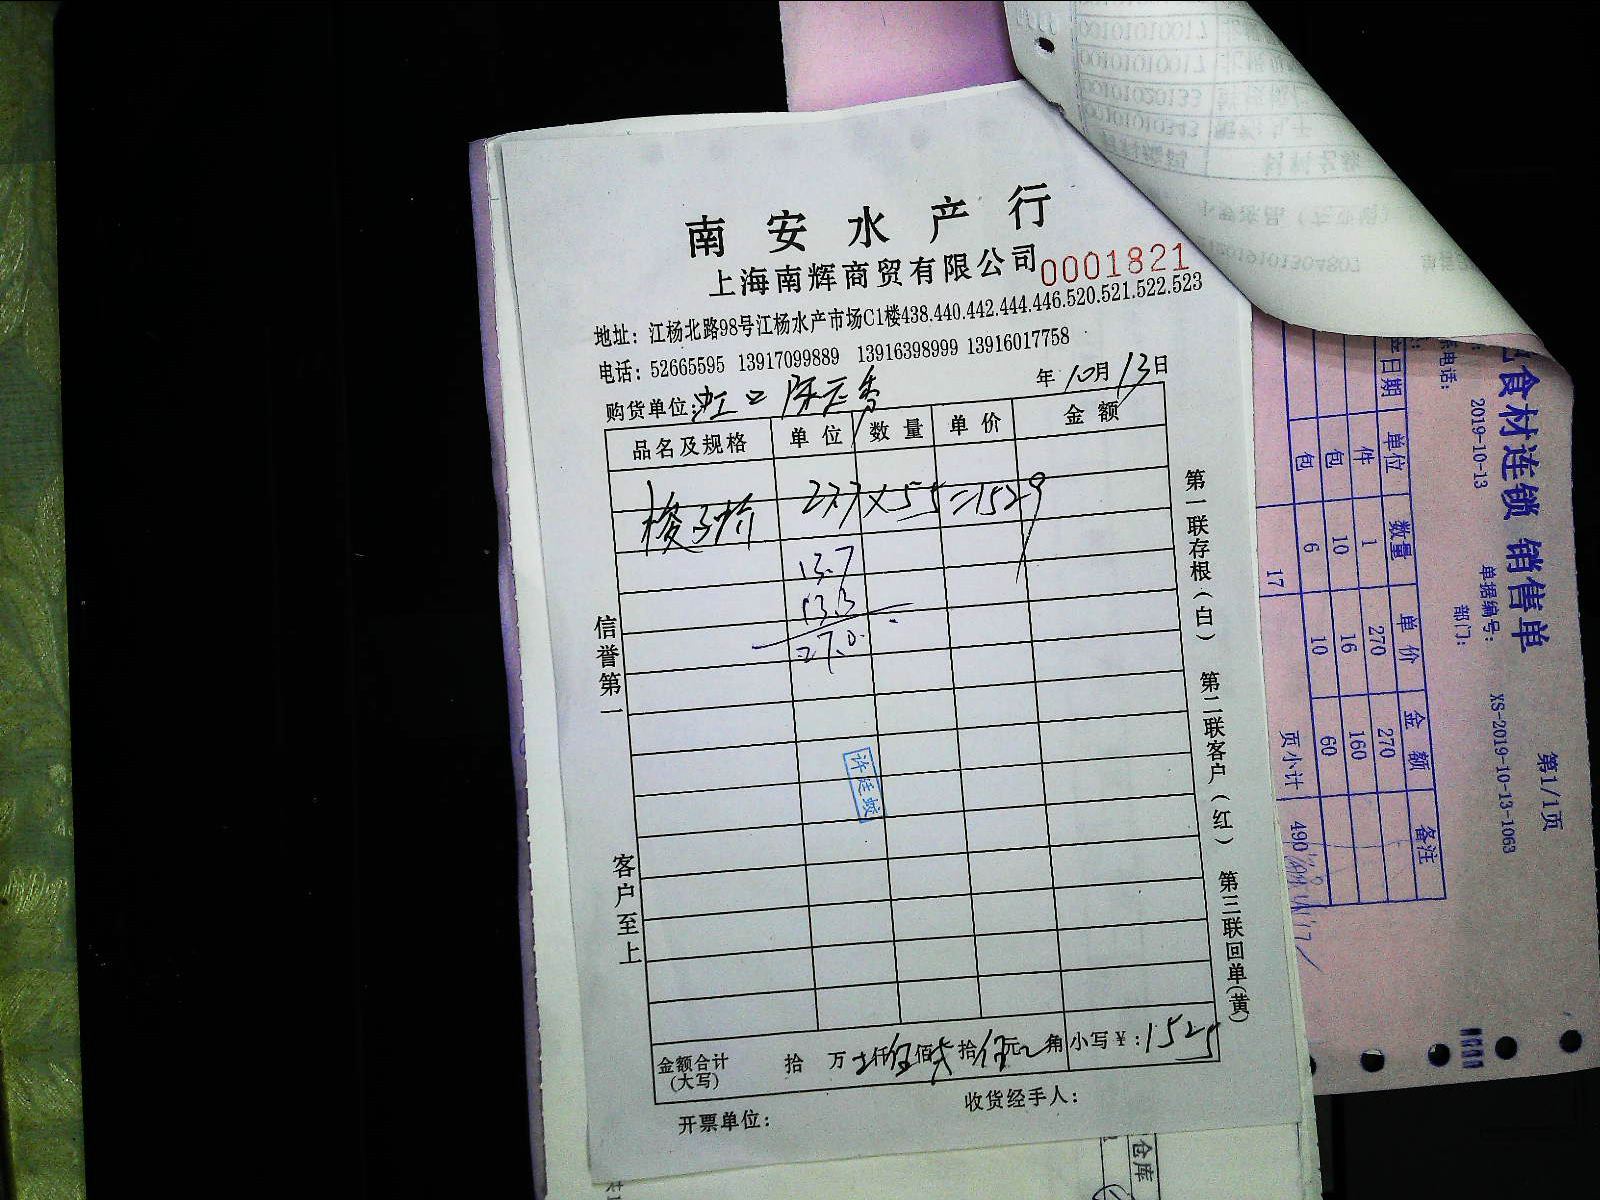 南安水产行
上海南辉商贸有限公司 0001821
地址：江杨北路98号江杨水产市场C1楼438.440.442.444.446.520.521.522.523
电话：52665595 13917099889 13916398999 13916017758
购货单位：虹口 年10月13日
品名及规格 单位 数量 单价 金额
梭子 27.7×55=1529
13.7
13.3
27.0
许廷蛟
金额合计（大写） 拾 万 仟伍佰 拾伍元 角 小写￥：1525
开票单位： 收货经手人：
信誉第一
客户至上
第一联存根（白） 第二联客户（红） 第三联回单（黄）
食材连锁 销售单
第1/1页
2019-10-13 单据编号： XS-2019-10-13-1063
系电话： 部门：
产日期 单位 数量 单价 金额 备注
件 1 270 270
包 10 16 160
包 6 10 60
17 页小计 490
仓库